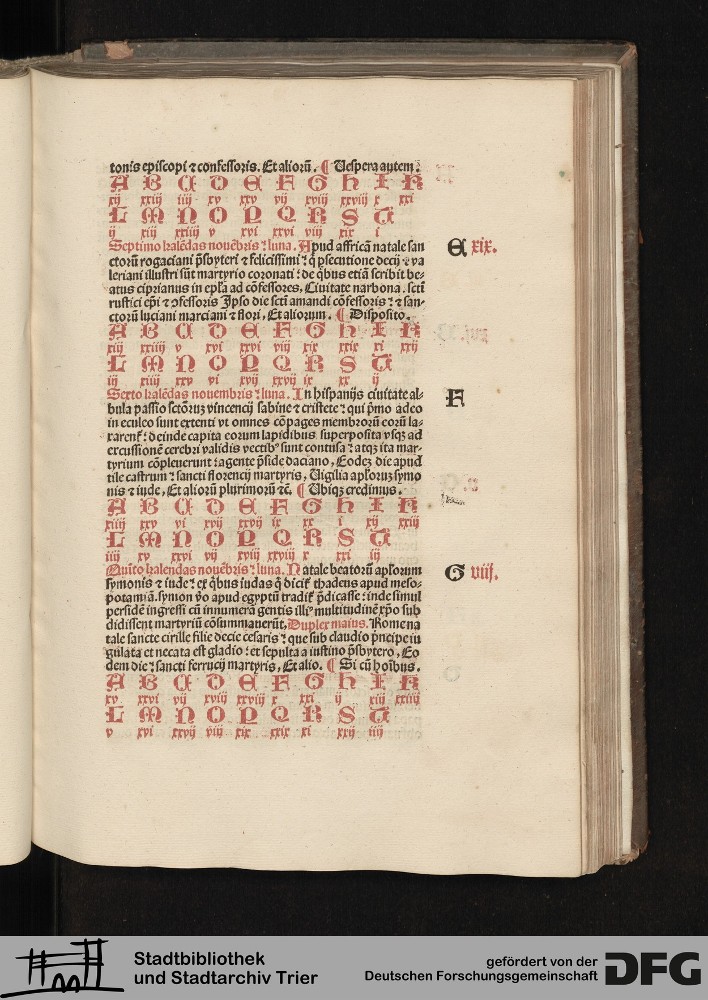 tonis episcopi ⁊ confessoris. Et aliorū. ¶ Vespera autem.
A B C D E F G H I K
xij xxiij iiij xv xxv vij xvij xxvij x xxi
L M N O P Q R S U
ij xiij xxiiij v xvi xxvi viij xix i
Septimo kalēdas nouēbris: luna. Apud affricā natale san
ctorū rogaciani p̄sbyteri ⁊ felicissimi: q̄ ꝑsecutione decij ⁊ va
leriani illustri sūt martyrio coronati: de q̄bus etiā scribit be-
atus ciprianus in epl̄a ad cōfessores. Ciuitate narbona. scti
rustici ep̄i ⁊ ꝯfessoris Ipso die sctī amandi cōfessoris: ⁊ san-
ctorū luciani marciani ⁊ flori, Et aliorum. ¶ Disposito.
E xix.
A B C D E F G H I K
xiij xxiiij v xvi xxvi viij xix xxix xi xxij
L M N O P Q R S U
iij xiiij xxv vi xvij xxvij ix xx ij
Sexto kalēdas nouembris: luna. In hispanijs ciuitate al-
bula passio sctōꝝ vincencij sabine ⁊ cristete: qui p̄mo adeo
in eculeo sunt extenti vt omnes cōpages membrorū eorū la-
xarent᷑: deinde capita eorum lapidibus superposita vsqꝫ ad
excussionē cerebri validis vectibꝰ sunt contusa: atqꝫ ita mar-
tyrium cōpleuerunt: agente p̄side daciano, Eodeꝫ die apud
tile castrum: sancti florencij martyris, Uigilia aplorꝰ symo
nis ⁊ iude, Et aliorū plurimorū ⁊c̄. ¶ Ubiqꝫ credimus.
F
A B C D E F G H I K
xiiij xxv vi xvij xxvij ix xx i xij xxiij
L M N O P Q R S U
iiij xv xxvi vij xviij xxviij x xxi iij
Quīto kalendas nouēbris: luna. Natale beatorū aplorum
symonis ⁊ iude: ex q̄bus iudas q̄ dicit᷑ thadeus apud meso-
potamiā. symon v̄o apud egyptū tradit᷑ p̄dicasse: inde simul
persidē ingressi cū innumerā gentis illiꝰ multitudinē xp̄o sub
didissent martyriū cōsummauerūt, Duplex maius. Rome na
tale sancte cirille filie decie cesaris: que sub claudio p̄ncipe iu
gulata et necata est gladio: et sepulta a iustino p̄sbytero, Eo
dem die: sancti ferrucij martyris, Et alio. ¶ Si cū hoībus.
G viij.
A B C D E F G H I K
xv xxvi vij xviij xxviij x xxi ij xiij xxiiij
L M N O P Q R S U
v xvi xxvij viij xix xxix xi xxij iiij
Stadtbibliothek
und Stadtarchiv Trier
gefördert von der
Deutschen Forschungsgemeinschaft
DFG